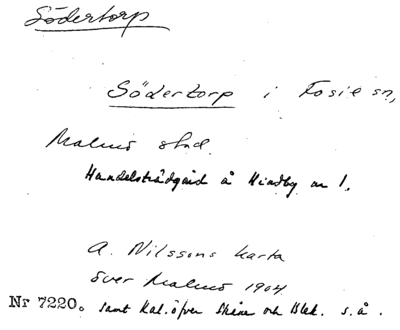 Södertorp
Södertorp i Fosie sn,
Malmö stad.
Handelsträdgård å Hindby nr 1.
A. Nilssons karta
över Malmö 1904
Nr 7220. samt Kal. öfver Skåne och Blek. s.å.